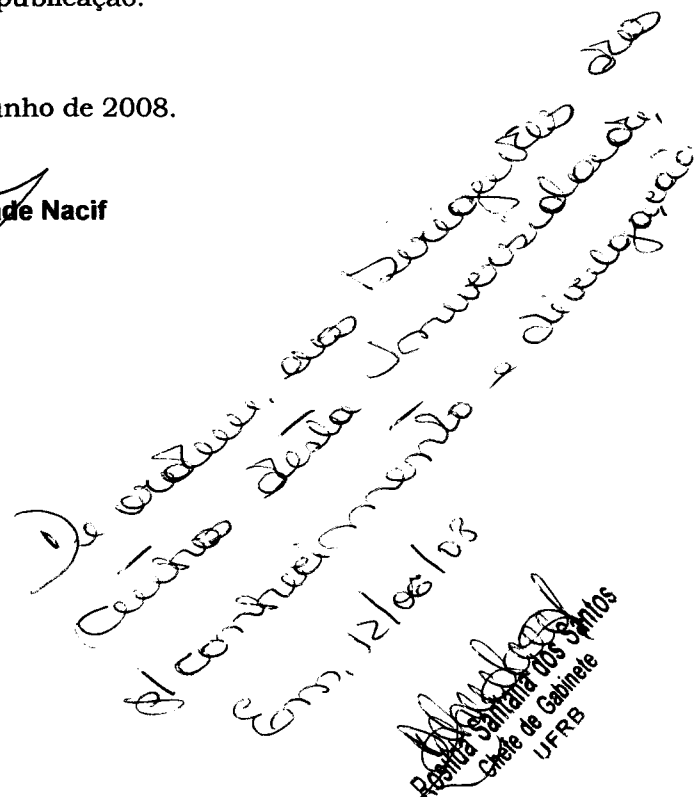 publicação.
unho de 2008.
de Nacif
De ordem, aos Dirigentes dos
Centros desta Universidade,
p/ conhecimento e divulgação
Em, 12/06/08
Rosilda Santana dos Santos
Chefe de Gabinete
UFRB